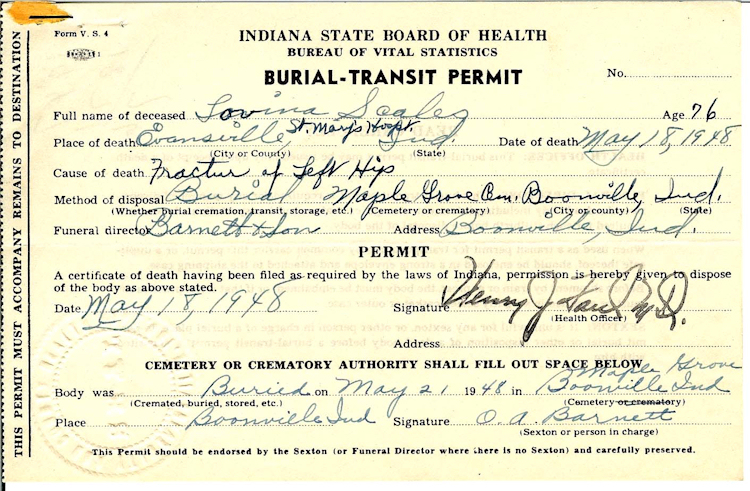 Form V. S. 4
INDIANA STATE BOARD OF HEALTH
BUREAU OF VITAL STATISTICS
BURIAL-TRANSIT PERMIT
No.
THIS PERMIT MUST ACCOMPANY REMAINS TO DESTINATION
Full name of deceased Lovina Scales Age 76
Place of death Evansville, St. Mary's Hospt. Ind. Date of death May 18, 1948
(City or County) (State)
Cause of death Fractur of Left Hip
Method of disposal Burial Maple Grove Cem. Boonville, Ind.
(Whether burial cremation, transit, storage, etc.) (Cemetery or crematory) (City or county) (State)
Funeral director Barnett & Son Address Boonville, Ind.
PERMIT
A certificate of death having been filed as required by the laws of Indiana, permission is hereby given to dispose
of the body as above stated.
Date May 18, 1948 Signature Henry J M.D.
(Health Officer)
Address
CEMETERY OR CREMATORY AUTHORITY SHALL FILL OUT SPACE BELOW
Maple Grove
Body was Buried on May 21 1948 in Boonville Ind
(Cremated, buried, stored, etc.) (Cemetery or crematory)
Place Boonville Ind Signature O. A. Barnett
(Sexton or person in charge)
This Permit should be endorsed by the Sexton (or Funeral Director where there is no Sexton) and carefully preserved.